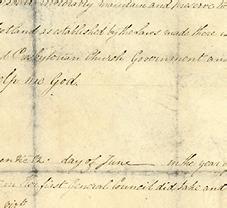 inviolably maintain and preserve
Scotland as established by the Laws made there
Presbyterian Church Government and
help me God.
day of June in the year of
first General Council did take and